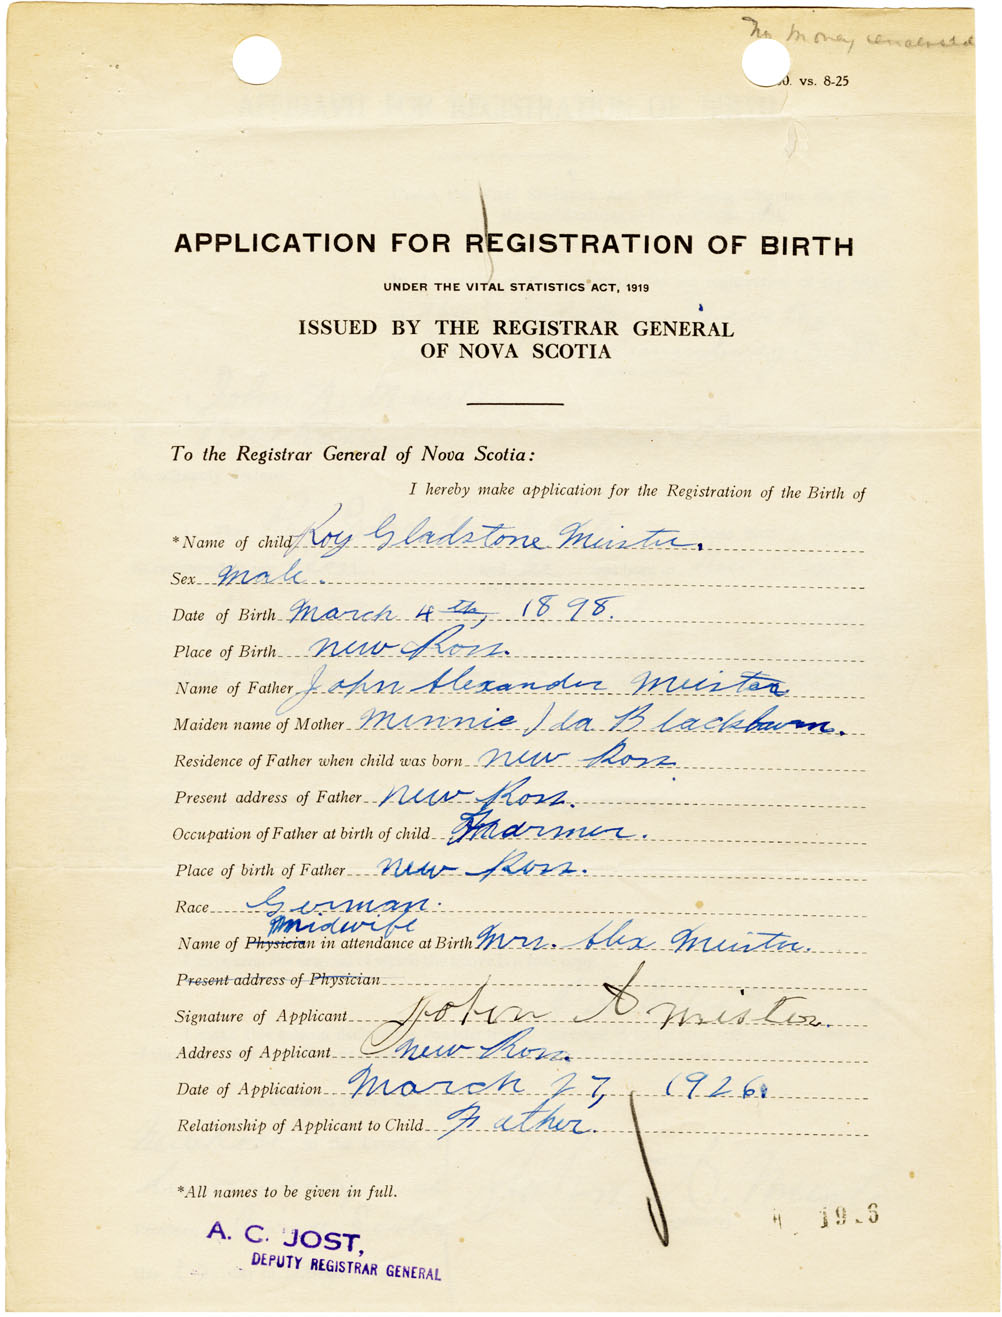 No money enclosed
vs. 8-25
APPLICATION FOR REGISTRATION OF BIRTH
UNDER THE VITAL STATISTICS ACT, 1919
ISSUED BY THE REGISTRAR GENERAL
OF NOVA SCOTIA
To the Registrar General of Nova Scotia:
I hereby make application for the Registration of the Birth of
*Name of child Roy Gladstone Meister.
Sex Male.
Date of Birth March 4th, 1898.
Place of Birth New Ross.
Name of Father John Alexander Meister
Maiden name of Mother Minnie Ida Blackburn.
Residence of Father when child was born New Ross
Present address of Father New Ross.
Occupation of Father at birth of child Farmer.
Place of birth of Father New Ross.
Race German.
midwife
Name of Physician in attendance at Birth Mrs. Alex Meister.
Present address of Physician
Signature of Applicant John A Mister.
Address of Applicant New Ross.
Date of Application March 27, 1926.
Relationship of Applicant to Child Father.
*All names to be given in full.
A. C. JOST,
DEPUTY REGISTRAR GENERAL